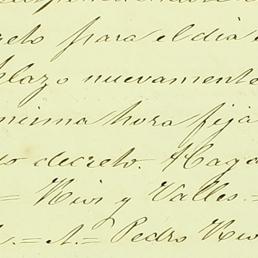 reto para el dia
plazo nuevamente
misma hora fija
decreto. Haga
= Rios y Valles. =
= A. = Pedro Rio